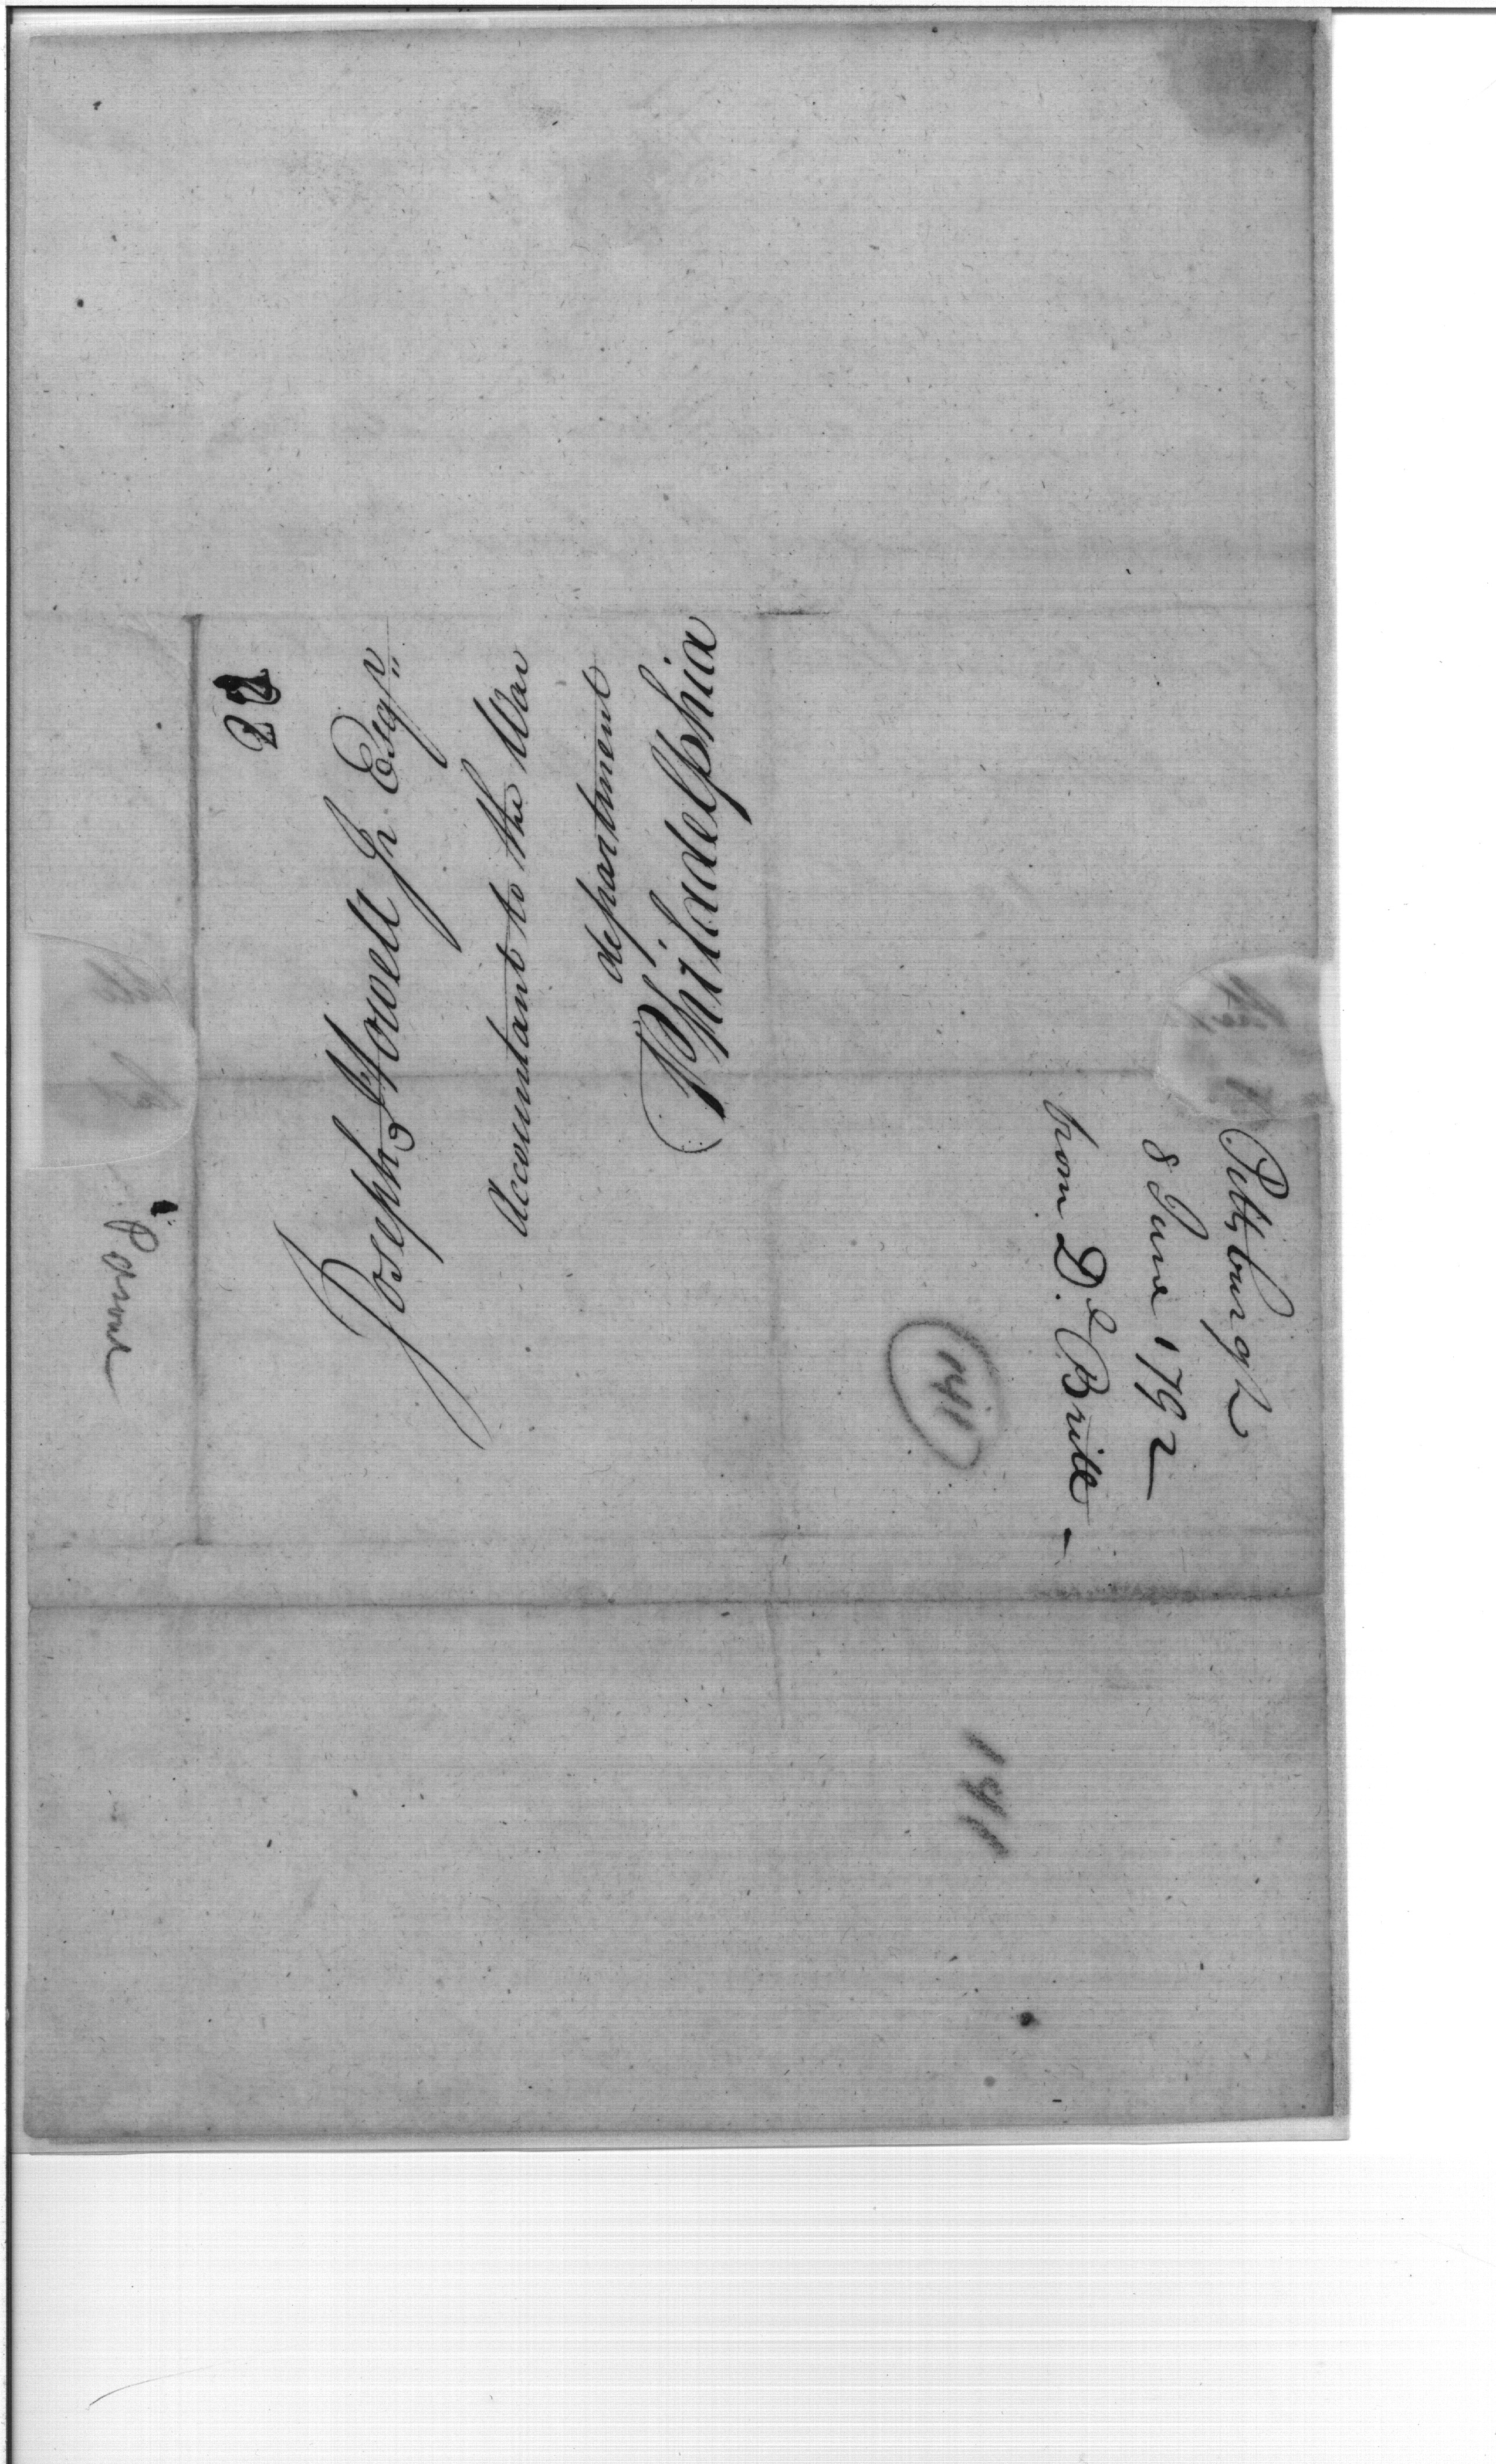 22
Joseph Howell Jr Esqr
Accountant to the War
department
Philadelphia
Pittsburgh
8 June 1792
from D.l Britt
141
141